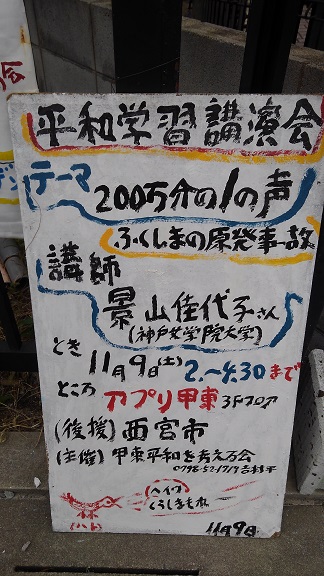 平和学習講演会
テーマ
200万分の1の声
ふくしまの原発事故
講師
景山佳代子さん
(神戸女学院大学)
とき 11月9日(土) 2.~4.30まで
ところ アプリ甲東 3Fフロア
(後援) 西宮市
(主催) 甲東平和を考える会
11月9日